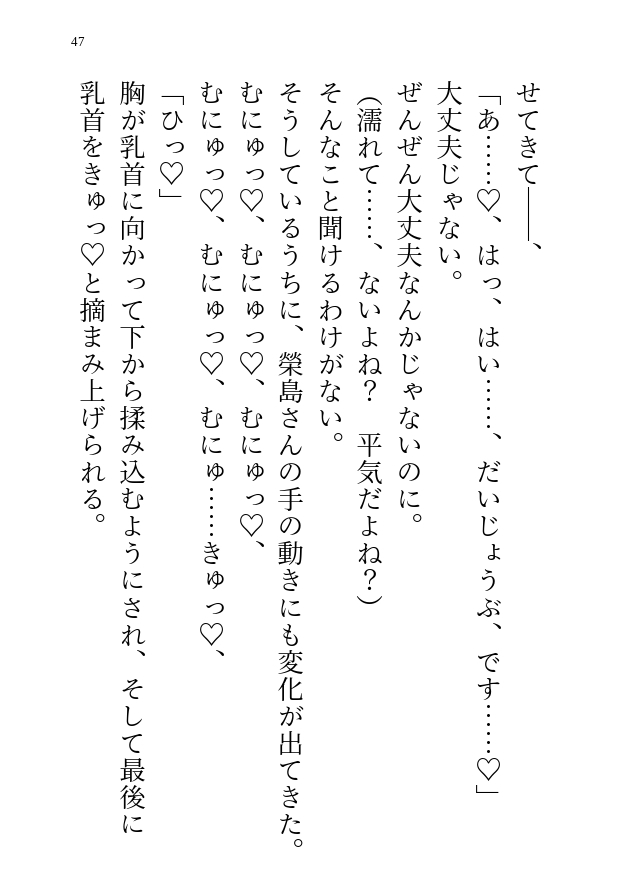 47
せてきて――、
「あ……♡、はっ、はい……、だいじょうぶ、です……♡」
大丈夫じゃない。
ぜんぜん大丈夫なんかじゃないのに。
(濡れて……、ないよね？　平気だよね？)
そんなこと聞けるわけがない。
そうしているうちに、榮島さんの手の動きにも変化が出てきた。
むにゅっ♡、むにゅっ♡、むにゅっ♡、
むにゅっ♡、むにゅっ♡、むにゅ……きゅっ♡、
「ひっ♡」
胸が乳首に向かって下から揉み込むようにされ、そして最後に
乳首をきゅっ♡と摘まみ上げられる。